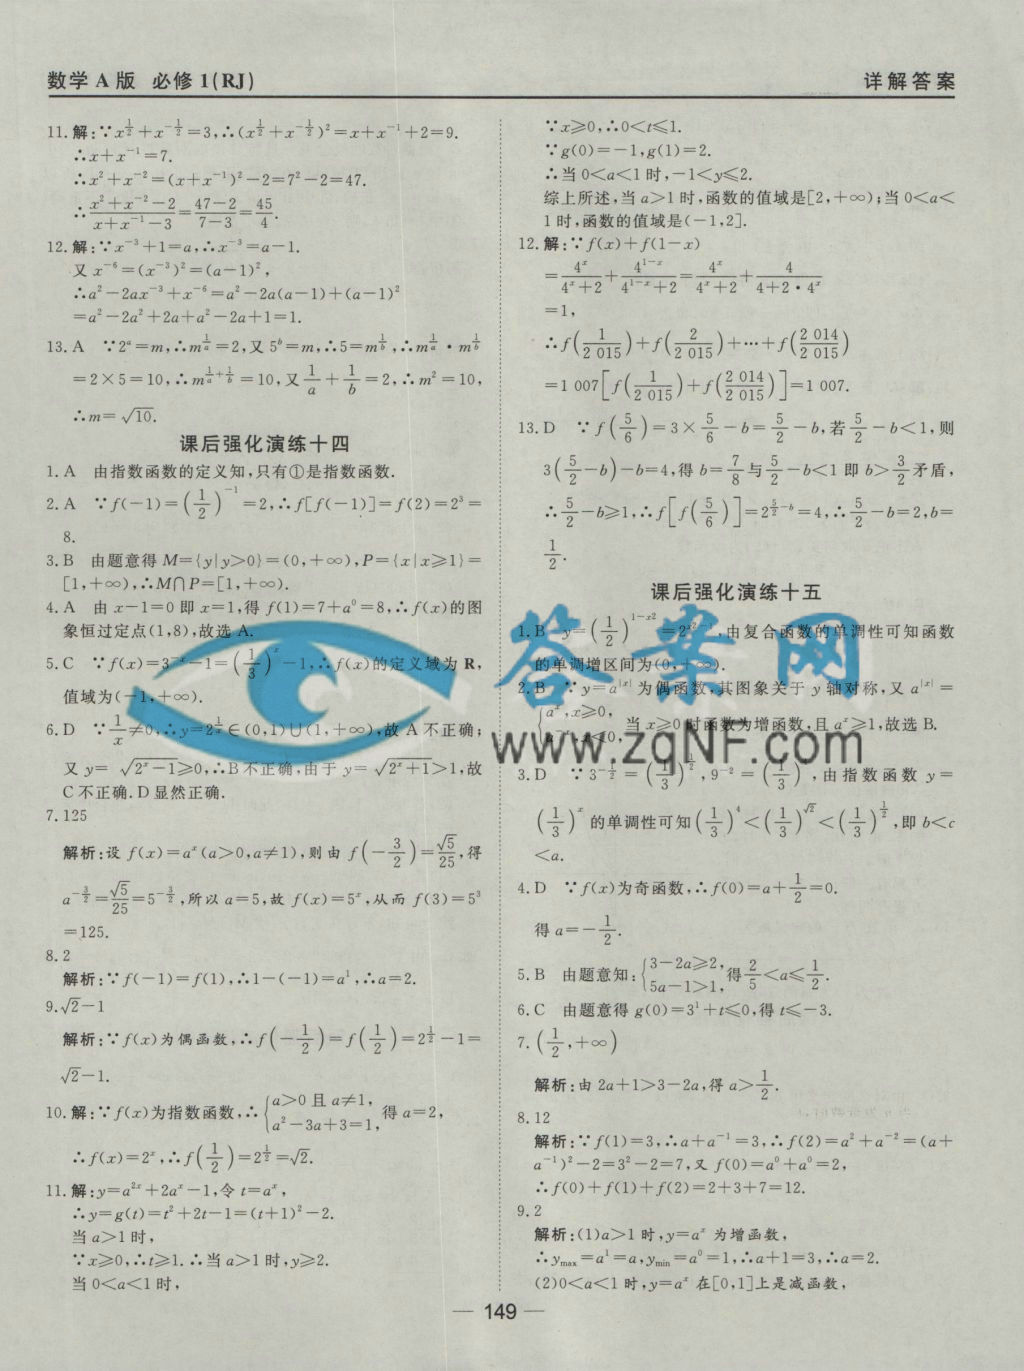 数学A版 必修1(RJ)
详解答案
11.解:∵x^{1/2}+x^{-1/2}=3,∴(x^{1/2}+x^{-1/2})²=x+x⁻¹+2=9.
∴x+x⁻¹=7.
∴x²+x⁻²=(x+x⁻¹)²-2=7²-2=47.
∴(x²+x⁻²-2)/(x+x⁻¹-3)=(47-2)/(7-3)=45/4.
12.解:∵x⁻³+1=a,∴x⁻³=a-1.
又x⁻⁶=(x⁻³)²=(a-1)²,
∴a²-2ax⁻³+x⁻⁶=a²-2a(a-1)+(a-1)²
=a²-2a²+2a+a²-2a+1=1.
13.A ∵2ᵃ=m,∴m^{1/a}=2,又5ᵇ=m,∴5=m^{1/b},∴m^{1/a}·m^{1/b}
=2×5=10,∴m^{1/a+1/b}=10,又1/a+1/b=2,∴m²=10,
∴m=√10.
课后强化演练十四
1.A 由指数函数的定义知,只有①是指数函数.
2.A ∵f(-1)=(1/2)⁻¹=2,∴f[f(-1)]=f(2)=2³=
8.
3.B 由题意得M={y|y>0}=(0,+∞),P={x|x≥1}=
[1,+∞),∴M∩P=[1,+∞).
4.A 由x-1=0即x=1,得f(1)=7+a⁰=8,∴f(x)的图
象恒过定点(1,8),故选A.
5.C ∵f(x)=3⁻ˣ-1=(1/3)ˣ-1,∴f(x)的定义域为R,
值域为(-1,+∞).
6.D ∵1/x≠0,∴y=2^{1/x}∈(0,1)∪(1,+∞),故A不正确;
又y=√(2ˣ-1)≥0,∴B不正确,由于y=√(2ˣ+1)>1,故
C不正确.D显然正确.
7.125
解析:设f(x)=aˣ(a>0,a≠1),则由f(-3/2)=√5/25,得
a^{-3/2}=√5/25=5^{-3/2},所以a=5,故f(x)=5ˣ,从而f(3)=5³
=125.
8.2
解析:∵f(-1)=f(1),∴1-(-1)=a¹,∴a=2.
9.√2-1
解析:∵f(x)为偶函数,∴f(-1/2)=f(1/2)=2^{1/2}-1=
√2-1.
10.解:∵f(x)为指数函数,∴{a>0且a≠1, a²-3a+3=1, 得a=2,
∴f(x)=2ˣ,∴f(1/2)=2^{1/2}=√2.
11.解:y=a²ˣ+2aˣ-1,令t=aˣ,
∴y=g(t)=t²+2t-1=(t+1)²-2.
当a>1时,
∵x≥0,∴t≥1.∴当a>1时,y≥2.
当0<a<1时,
∵x≥0,∴0<t≤1.
∵g(0)=-1,g(1)=2.
∴当0<a<1时,-1<y≤2.
综上所述,当a>1时,函数的值域是[2,+∞);当0<a<
1时,函数的值域是(-1,2].
12.解:∵f(x)+f(1-x)
=4ˣ/(4ˣ+2)+4^{1-x}/(4^{1-x}+2)=4ˣ/(4ˣ+2)+4/(4+2·4ˣ)
=1,
∴f(1/2 015)+f(2/2 015)+…+f(2 014/2 015)
=1 007[f(1/2 015)+f(2 014/2 015)]=1 007.
13.D ∵f(5/6)=3×5/6-b=5/2-b,若5/2-b<1,则
3(5/2-b)-b=4,得b=7/8与5/2-b<1即b>3/2矛盾,
∴5/2-b≥1,∴f[f(5/6)]=2^{5/2-b}=4,∴5/2-b=2,b=
1/2.
课后强化演练十五
1.B y=(1/2)^{1-x2}=2^{x2-1},由复合函数的单调性可知函数
的单调增区间为(0,+∞).
2.B ∵y=a^{|x|}为偶函数,其图象关于y轴对称,又a^{|x|}=
{aˣ,x≥0, a⁻ˣ,x<0, 当x≥0时函数为增函数,且aˣ≥1,故选B.
3.D ∵3^{-1/2}=(1/3)^{1/2},9⁻²=(1/3)⁴,由指数函数y=
(1/3)ˣ的单调性可知(1/3)⁴<(1/3)^{√2}<(1/3)^{1/2},即b<c
<a.
4.D ∵f(x)为奇函数,∴f(0)=a+1/2=0.
得a=-1/2.
5.B 由题意知:{3-2a≥2, 5a-1>1, 得2/5<a≤1/2.
6.C 由题意得g(0)=3¹+t≤0,得t≤-3.
7.(1/2,+∞)
解析:由2a+1>3-2a,得a>1/2.
8.12
解析:∵f(1)=3,∴a+a⁻¹=3,∴f(2)=a²+a⁻²=(a+
a⁻¹)²-2=3²-2=7,又f(0)=a⁰+a⁰=2,
∴f(0)+f(1)+f(2)=2+3+7=12.
9.2
解析:(1)a>1时,y=aˣ为增函数,
∴y_max=a¹=a,y_min=a⁰=1,∴a+1=3,∴a=2.
(2)0<a<1时,y=aˣ在[0,1]上是减函数,
— 149 —
答案网
www.zqNF.com